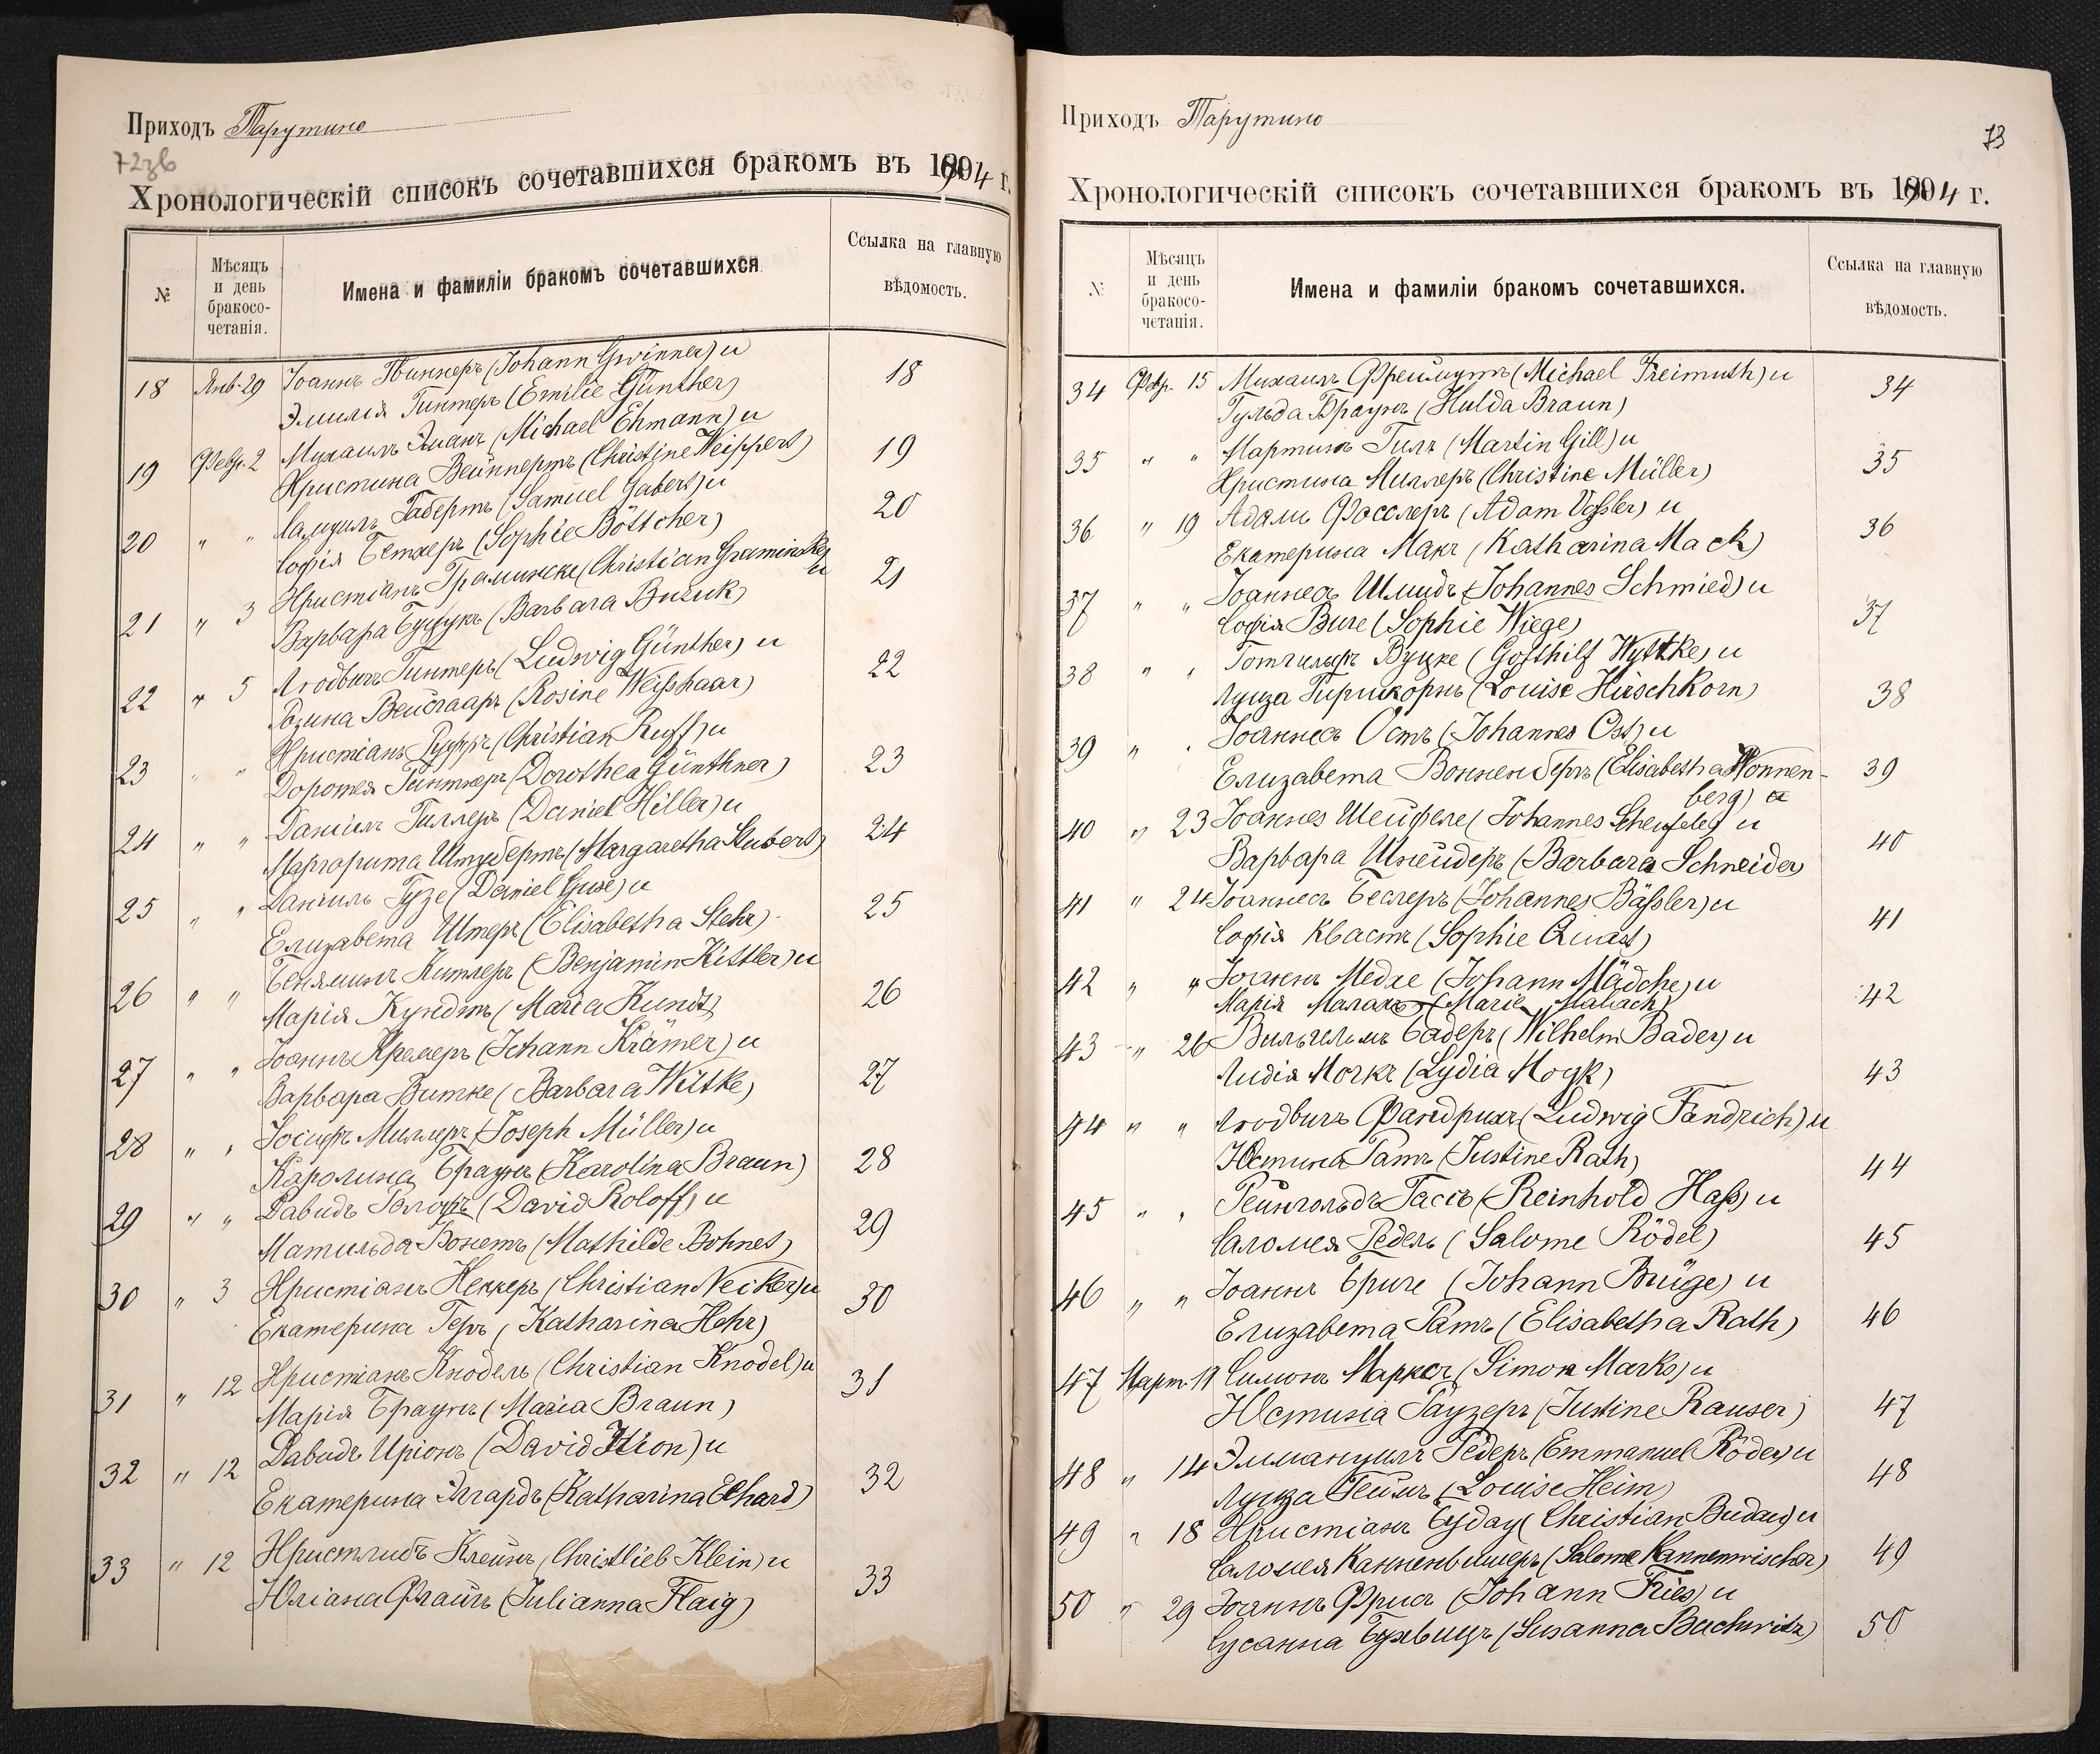 Приходъ Тарутино
72зв
Хронологическій списокъ сочетавшихся бракомъ въ 1904 г.
№
Мѣсяцъ и день бракосо-четанія.
Имена и фамиліи бракомъ сочетавшихся
Ссылка на главную вѣдомость.
18 Янв. 29 Іоаннъ Гвиннеръ (Johann Gwinner) и 18
Эмилія Гинтеръ (Emilie Günther)
19 Февр. 2 Михаилъ Эманъ (Michael Ehmann) и 19
Христина Вейппертъ (Christine Weippert)
20 " " Самуилъ Габертъ (Samuel Gabert) и 20
Софія Бетхеръ (Sophie Böttcher)
21 " 3 Христіанъ Граминске (Christian Graminske) и 21
Варвара Буцукъ (Barbara Buzuk)
22 " 5 Людвигъ Гинтеръ (Ludwig Günther) и 22
Розина Вейсгааръ (Rosine Weißhaar)
23 " " Христіанъ Руффъ (Christian Ruff) и 23
Доротея Гинтнеръ (Dorothea Günthner)
24 " " Даніилъ Гиллеръ (Daniel Hiller) и 24
Маргорита Штубертъ (Margaretha Stubert)
25 " " Даніилъ Гузе (Daniel Guse) и 25
Елизавета Штеръ (Elisabetha Stehr)
26 " " Беняминъ Китлеръ (Benjamin Kittler) и 26
Марія Кундтъ (Maria Kundt)
27 " " Іоаннъ Кремеръ (Johann Krämer) и 27
Варвара Витке (Barbara Wittke)
28 " " Іосифъ Миллеръ (Joseph Müller) и 28
Каролина Браунъ (Karolina Braun)
29 " " Давидъ Ролофъ (David Roloff) и 29
Матильда Бонетъ (Mathilde Bohnet)
30 " 3 Христіанъ Неккеръ (Christian Necker) и 30
Екатерина Геръ (Katharina Hehr)
31 " 12 Христіанъ Кнодель (Christian Knodel) и 31
Марія Браунъ (Maria Braun)
32 " 12 Давидъ Иріонъ (David Irion) и 32
Екатерина Эггардъ (Katharina Ehard)
33 " 12 Христлибъ Клейнъ (Christlieb Klein) и 33
Юліана Флайгъ (Julianna Flaig)
Приходъ Тарутино
73
Хронологическій списокъ сочетавшихся бракомъ въ 1904 г.
№
Мѣсяцъ и день бракосо-четанія.
Имена и фамиліи бракомъ сочетавшихся.
Ссылка на главную вѣдомость.
34 Февр. 15 Михаилъ Фреимутъ (Michael Freimuth) и 34
Гульда Браунъ (Hulda Braun)
35 " " Мартинъ Гилъ (Martin Gill) и 35
Христина Миллеръ (Christine Müller)
36 " 19 Адамъ Фосслеръ (Adam Voßler) и 36
Екатерина Макъ (Katharina Mack)
37 " " Іоаннесъ Шмидъ (Johannes Schmied) и 37
Софія Виге (Sophie Wiege)
38 " " Готгильфъ Вуцке (Gotthilf Wuttke) и 38
Луиза Гиришкорнъ (Louise Hirschkorn)
39 " " Іоаннесъ Остъ (Johannes Ost) и 39
Елизавета Вонненбергъ (Elisabetha Wonnen-
berg)
40 " 23 Іоаннес Шейфеле (Johannes Scheufele) и 40
Варвара Шнейдеръ (Barbara Schneider)
41 " 24 Іоаннесъ Беслеръ (Johannes Bäßler) и 41
Софія Квастъ (Sophie Quast)
42 " " Іоаннъ Медхе (Johann Mädche) и 42
Марія Малахъ (Marie Malach)
43 " 26 Вильгельмъ Бадеръ (Wilhelm Bader) и 43
Лидія Могкъ (Lydia Mogk)
44 " " Людвигъ Фандрихъ (Ludwig Fandrich) и 44
Юстина Ратъ (Justine Rath)
45 " " Рейнгольдъ Гассъ (Reinhold Haß) и 45
Саломея Редель (Salome Rödel)
46 " " Іоаннъ Бриге (Johann Brüge) и 46
Елизавета Ратъ (Elisabetha Rath)
47 Март. 11 Симонъ Марксъ (Simon Marks) и 47
Юстинia Раузеръ (Justine Rauser)
48 " 14 Эммануилъ Редеръ (Emmanuel Röder) и 48
Луиза Геймъ (Louise Heim)
49 " 18 Христіанъ Будау (Christian Budau) и 49
Саломея Канненвишеръ (Salome Kannenwischer)
50 " 29 Іоаннъ Фрисъ (Johann Fries) и 50
Сусанна Бухвицъ (Susanna Buchwitz)